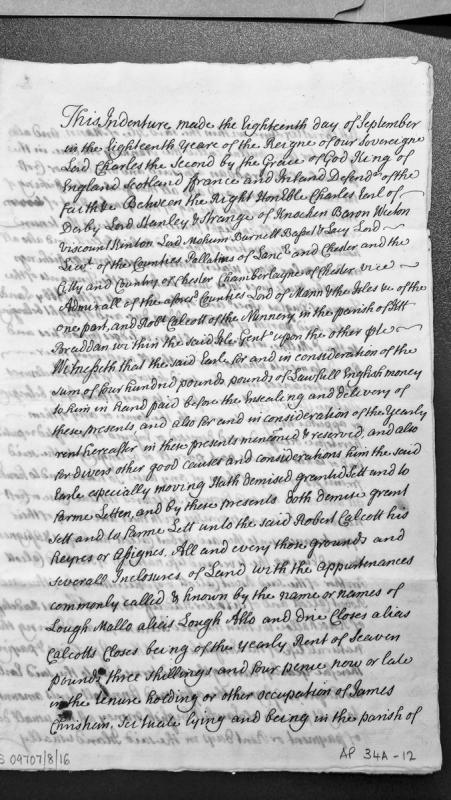 This Indenture made the Eighteenth day of September
in the Eighteenth Yeare of the Reigne of our Sovereigne
Lord Charles the Second by the Grace of God King of
England Scotland ffrance and Ireland Defendr of the
Faith &c Between the Right HonEble Charles Earl of
Derby Lord Stanley & Strange of Knocken Baron Weeton
Viscount Kinton Lord Mohum Burnell Basset & Lacy Lord
Lievt of the Counties Pallatins of Lancr and Chester and the
Citty and Country of Chester Chamberlayne of Chester vice
Admirall of the aforesd Counties Lord of Mann & the Isles &c of the
one part, and Robt Calcott of the Nunnery in the parish of Kk
Braddan within the said Isle Gent upon the other pte
Witnesseth that the said Earle for and in consideration of the
sum of four hundred pounds pounds of Lawfull English money
to him in hand paid before the Ensealing and delivery of
these presents, and also for and in consideration of the Yearly
rent hereafter in these presents menconed & reserved, and also
for divers other good causes and considerations him the said
Earle especially moving Hath demised granted Lett and to
Farme Letten, and by these presents doth demise grant
Sett and to Farme Lett unto the said Robert Calcott his
Heyres or Assignes, All and every those grounds and
severall Inclosures of Land with the appurtenances
commonly called & known by the name or names of
Lough Mallo alias Lough Allo and Closes alias
Calcotts Closes being of the yearly Rent of Seaven
pounds three shillings and four pence now or late
in the tenure holding or other occupation of James
Christian, Scituate lying and being in the parish of
S 09707/8/16
AP 34A-12